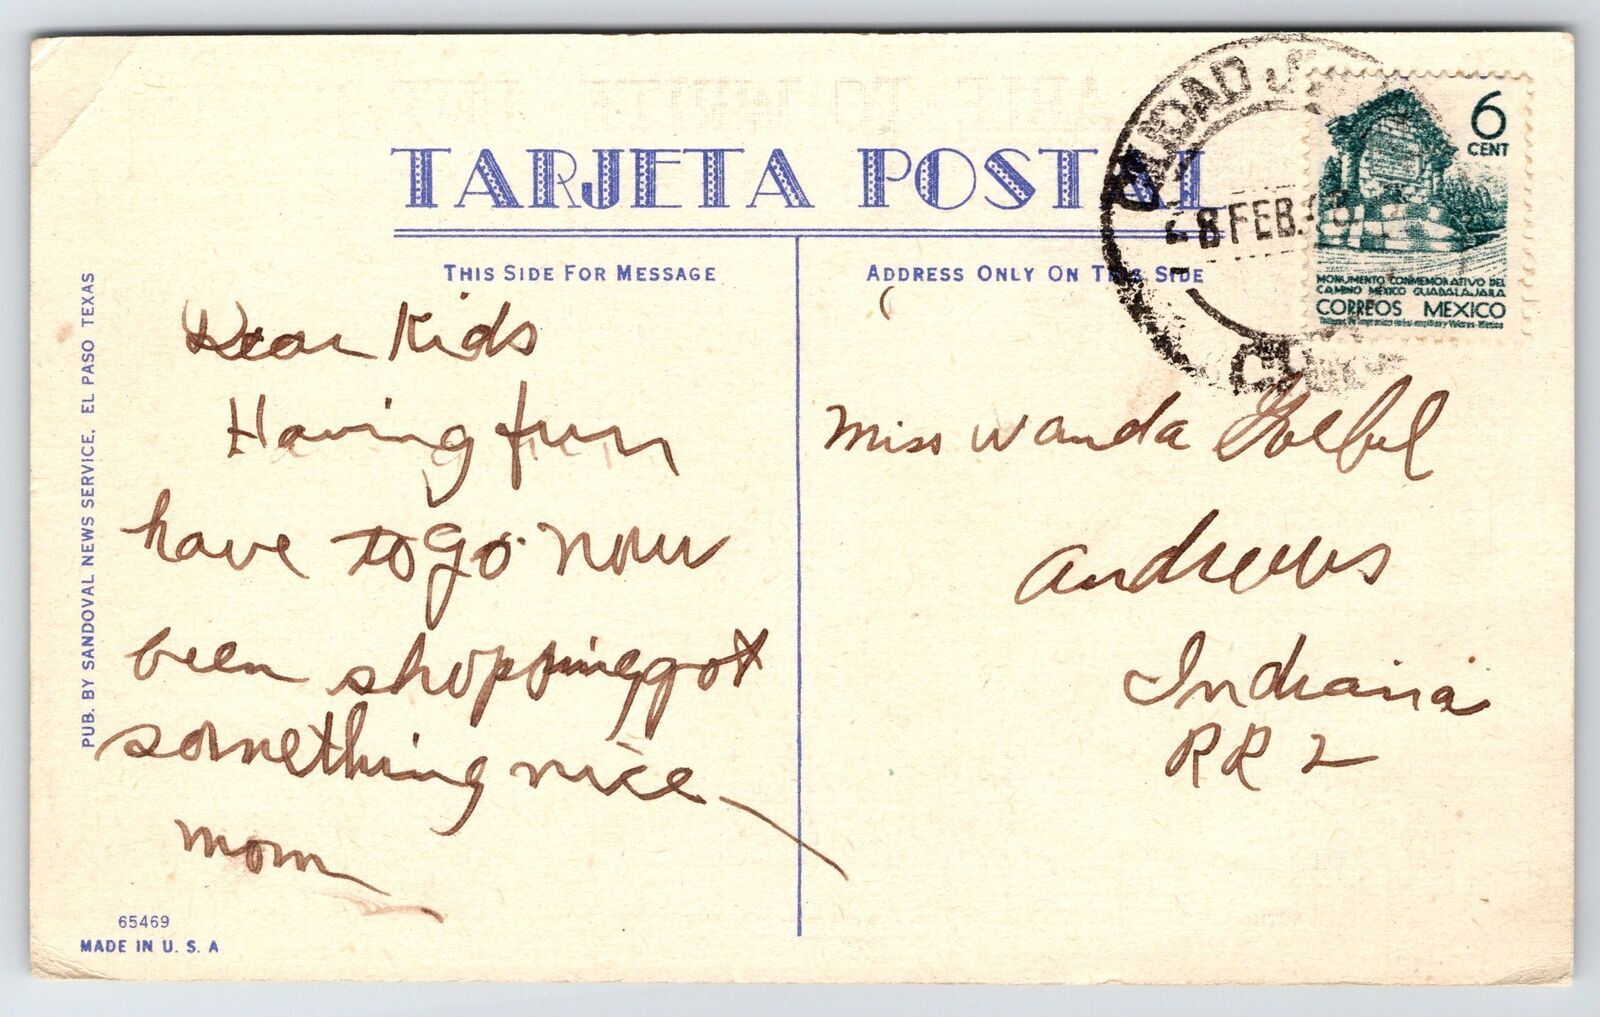 TARJETA POSTAL
THIS SIDE FOR MESSAGE
ADDRESS ONLY ON THIS SIDE
PUB. BY SANDOVAL NEWS SERVICE, EL PASO TEXAS
Dear Kids
Having fun
have to go now
been shopping got
something nice
mom
65469
MADE IN U. S. A
CIUDAD J
8 FEB.
6
CENT
MONUMENTO CONMEMORATIVO DEL
CAMINO MEXICO GUADALAJARA
CORREOS MEXICO
Miss Wanda Goebel
Andrews
Indiana
RR 2